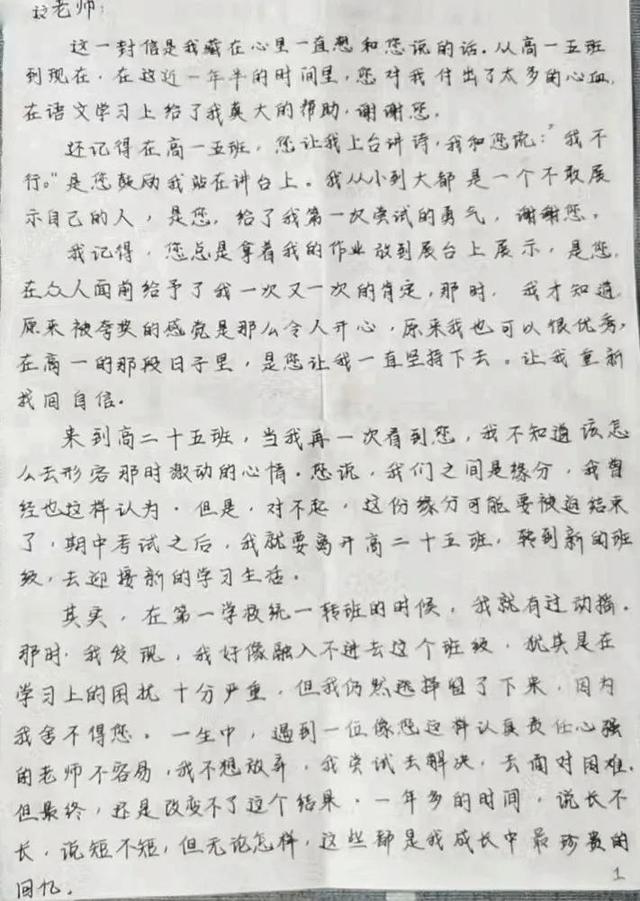 老师：
这一封信是我藏在心里一直想和您说的话。从高一五班
到现在，在这近一年半的时间里，您对我付出了太多的心血，
在语文学习上给了我莫大的帮助，谢谢您。
还记得在高一五班，您让我上台讲诗，我和您说：“我不
行。”是您鼓励我站在讲台上。我从小到大都是一个不敢展
示自己的人，是您，给了我第一次尝试的勇气，谢谢您。
我记得，您总是拿着我的作业放到展台上展示，是您，
在众人面前给予了我一次又一次的肯定，那时，我才知道，
原来被夸奖的感觉是那么令人开心，原来我也可以很优秀，
在高一的那段日子里，是您让我一直坚持下去。让我重新
找回自信。
来到高二十五班，当我再一次看到您，我不知道该怎
么去形容那时激动的心情。您说，我们之间是缘分，我曾
经也这样认为。但是，对不起，这份缘分可能要被迫结束
了，期中考试之后，我就要离开高二十五班，转到新的班
级，去迎接新的学习生活。
其实，在第一学校统一转班的时候，我就有过动摇。
那时，我发现，我好像融入不进去这个班级，尤其是在
学习上的困扰十分严重，但我仍然选择留了下来，因为
我舍不得您。一生中，遇到一位像您这样认真责任心强
的老师不容易，我不想放弃，我尝试去解决，去面对困难。
但最终，还是改变不了这个结果。一年多的时间，说长不
长，说短不短，但无论怎样，这些都是我成长中最珍贵的
回忆。
1